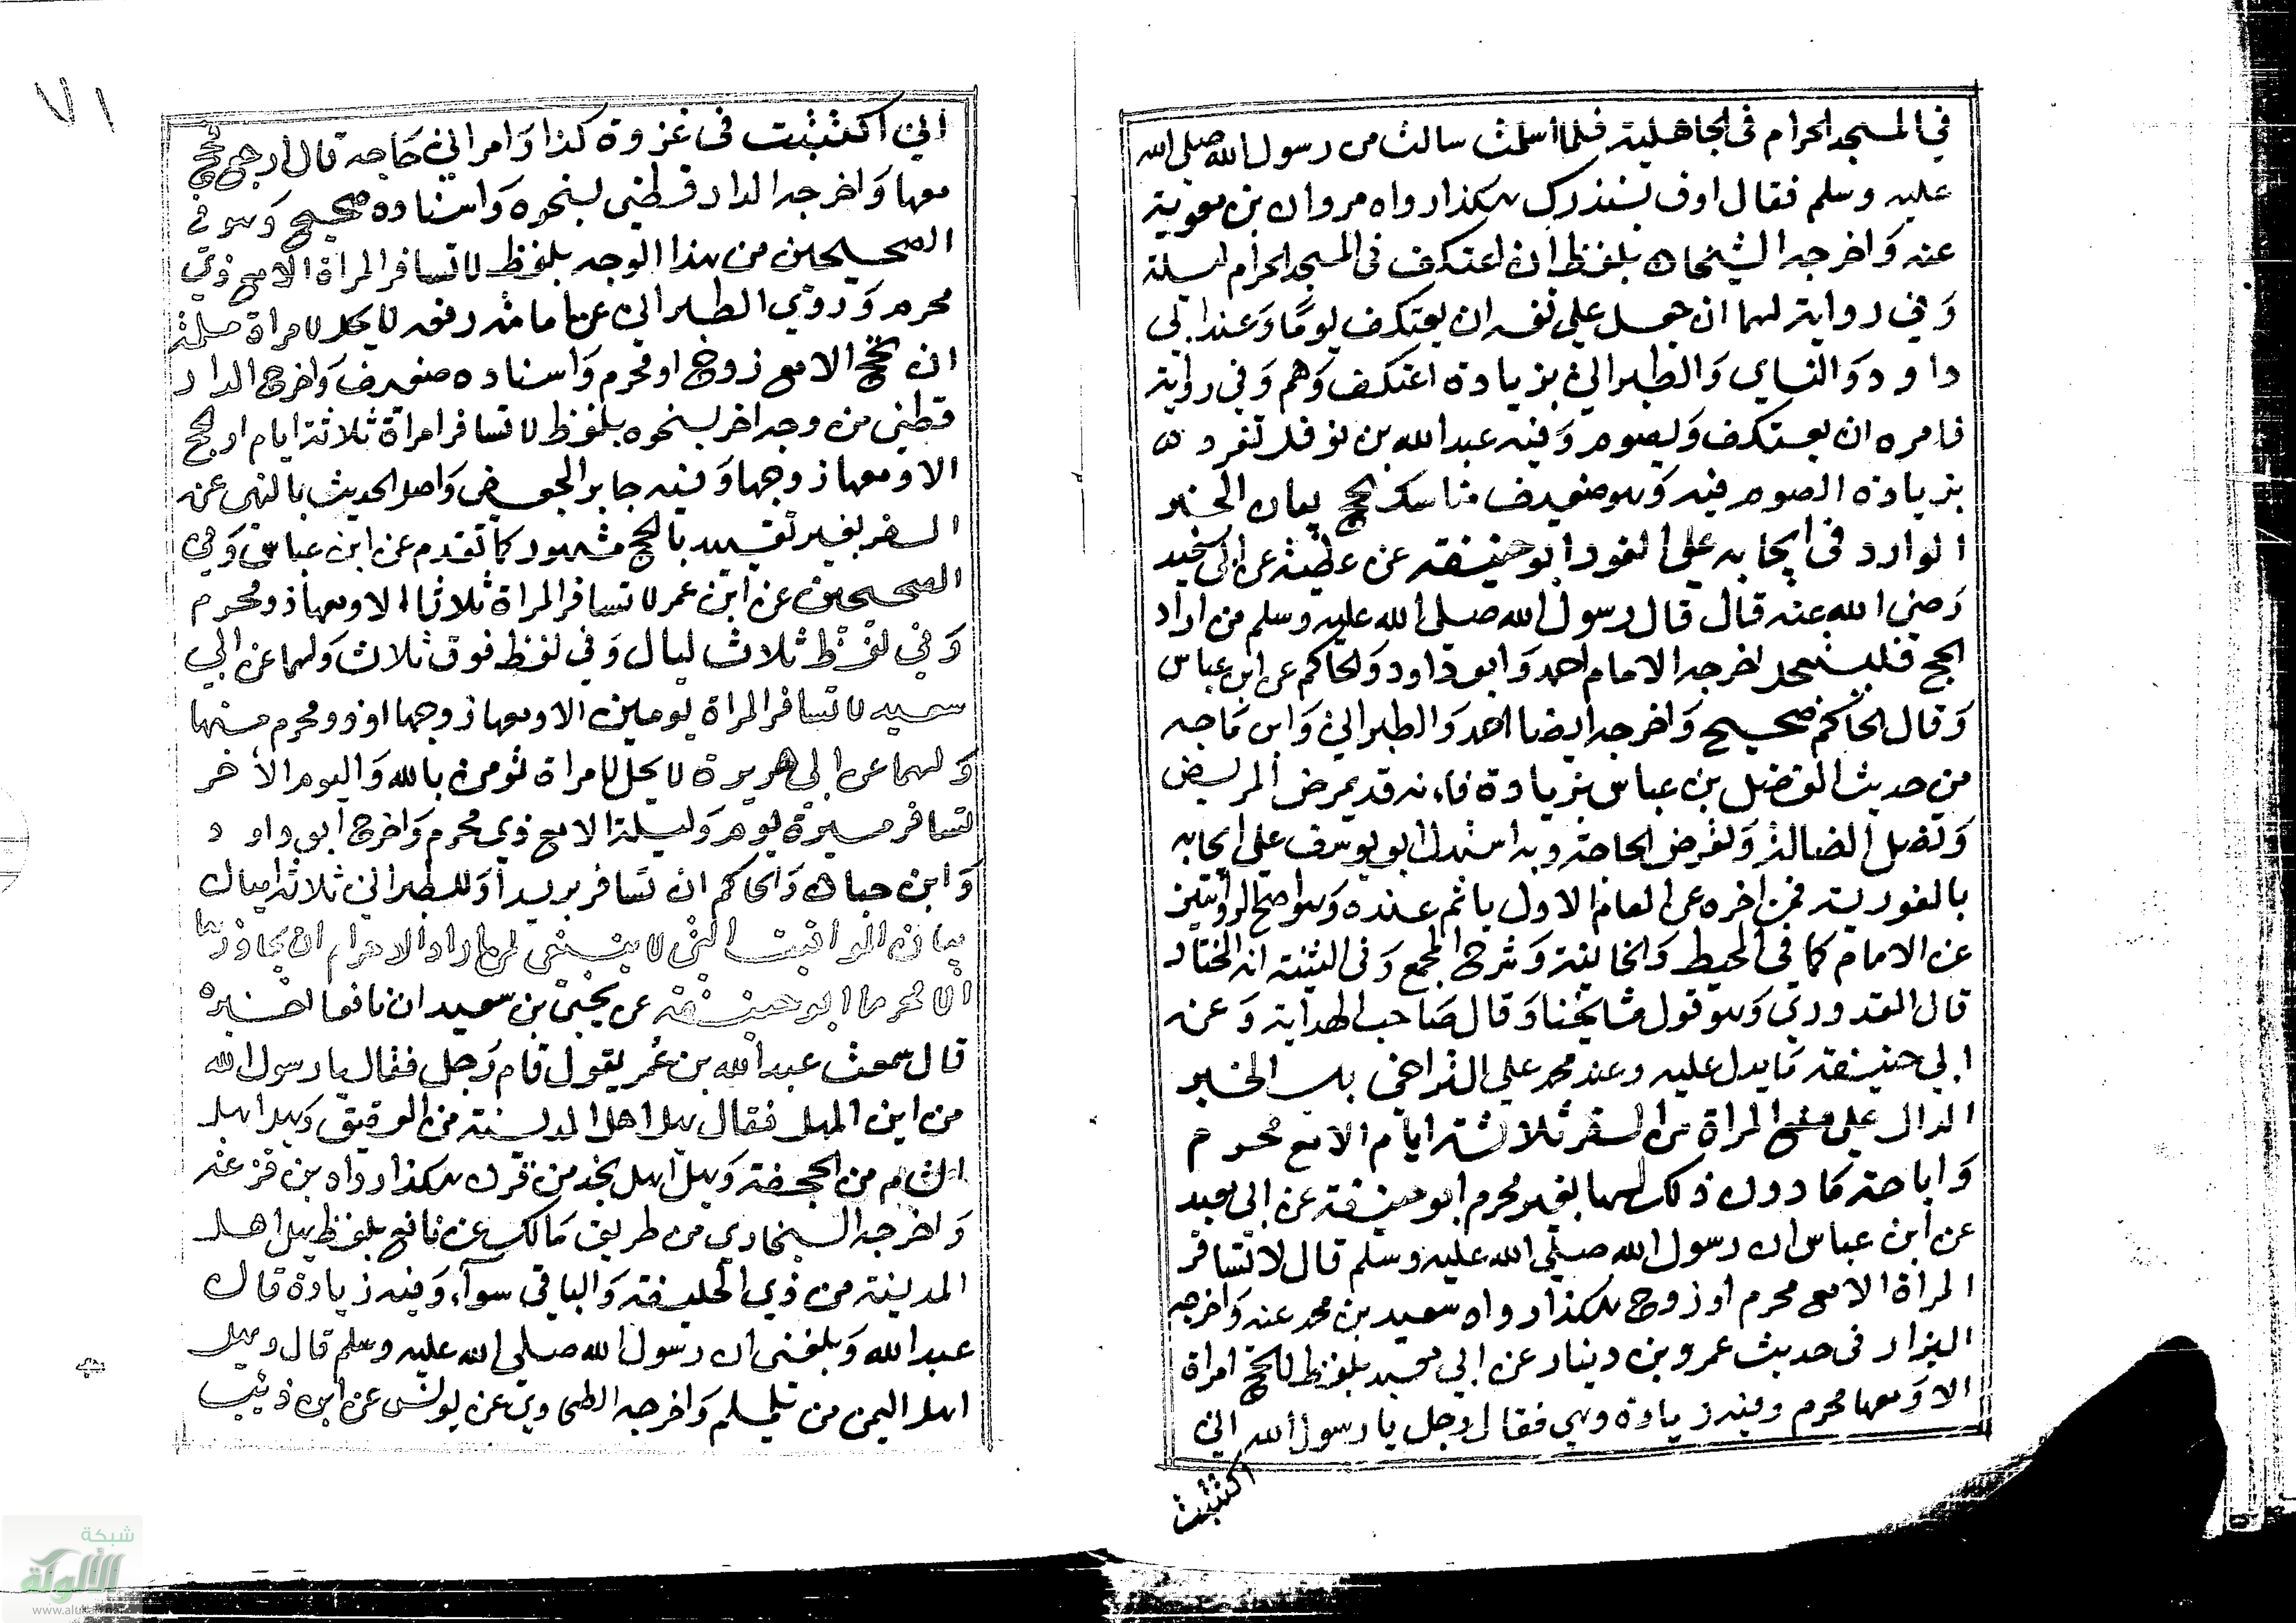 في المسجد الحرام في الجاهلية فلما اسلمت سالت من رسول الله صلى الله
عليه وسلم فقال اوف بنذرك هكذا رواه مروان بن معوية
عنه واخرجه الشيخان بلفظ ان اعتكف في المسجد الحرام ليلة
وفي رواية لهما ان جعل علي نفسه ان يعتكف يوما وعند ابي
داود والنساي والطبراني بزيادة اعتكف وهم وفي رواية
فامره ان يعتكف ويصوم وفيه عبد الله بن نوفل تفرد
بزيادة الصوم فيه وهو ضعيف مناسك الحج بيان الخبر
الوارد في ايجابه علي الفور ابو حنيفة عن عطية عن ابي سعيد
رضي الله عنه قال قال رسول الله صلى الله عليه وسلم من اراد
الحج فليتعجل اخرجه الامام احمد وابو داود والحاكم عن ابن عباس
وقال الحاكم صحيح واخرجه ايضا احمد والطبراني وابن ماجه
من حديث الفضل بن عباس بزيادة فانه قد يمرض المريض
وتضل الضالة وتعرض الحاجة وبه استدل ابو يوسف علي ايجابه
بالفورية فمن اخره عن العام الاول ياثم عنده وهو اصح الروايتين
عن الامام كما في المحيط والخانية وشرح المجمع وفي القنية انه المختار
قال القدوري وهو قول مشايخنا وقال صاحب الهداية وعن
ابي حنيفة ما يدل عليه وعند محمد علي التراخي بيان الخبر
الدال علي منع المراة من السفر ثلاثة ايام الا مع محرم
واباحة ما دون ذلك لها بغير محرم ابو حنيفة عن ابي معبد
عن ابن عباس ان رسول الله صلى الله عليه وسلم قال لا تسافر
المراة الا مع محرم او زوج هكذا رواه سعيد بن محمد عنه واخرجه
البزار في حديث عمرو بن دينار عن ابي معبد بلفظ لا تحج امراة
الا ومعها محرم وفيه زيادة وهي فقال رجل يا رسول الله اني
اكتتبت
٧١
اني اكتتبت في غزوة كذا وامراتي حاجة قال ارجع فحج
معها واخرجه الدارقطني بنحوه واسناده صحيح وهو في
الصحيحين من هذا الوجه بلفظ لا تسافر المراة الا مع ذي
محرم وروي الطبراني عن امامة رفعه لا يحل لامراة مسلمة
ان تحج الا مع زوج او محرم واسناده ضعيف واخرج الدار
قطني من وجه اخر بنحوه بلفظ لا تسافر امراة ثلاثة ايام او تحج
الا ومعها زوجها وفيه جابر الجعفي واصل الحديث بالنهي عن
السفر بغير تقييد بالحج مشهور كما تقدم عن ابن عباس وفي
الصحيحين عن ابن عمر لا تسافر المراة ثلاثا الا ومعها ذو محرم
وفي لفظ ثلاث ليال وفي لفظ فوق ثلاث ولهما عن ابي
سعيد لا تسافر المراة يومين الا ومعها زوجها او ذو محرم منها
ولهما عن ابي هريرة لا يحل لامراة تؤمن بالله واليوم الاخر
تسافر مسيرة يوم وليلة الا مع ذي محرم واخرج ابو داود
وابن حبان والحاكم ان تسافر بريدا وللطبراني ثلاثة اميال
بيان المواقيت التي لا ينبغي لمن اراد الاحرام ان يجاوزها
الا محرما ابو حنيفة عن يحيى بن سعيد ان نافعا اخبره
قال سمعت عبد الله بن عمر يقول قام رجل فقال يا رسول الله
من اين المهل فقال يهل اهل المدينة من العقيق ويهل اهل
الشام من الجحفة ويهل اهل نجد من قرن هكذا رواه بن قزعة
واخرجه البخاري من طريق مالك عن نافع بلفظ يهل اهل
المدينة من ذي الحليفة والباقي سواء وفيه زيادة قال
عبد الله وبلغني ان رسول الله صلى الله عليه وسلم قال ويهل
اهل اليمن من يلملم واخرجه الطحاوي عن يونس عن ابن
شبكة
الألوكة